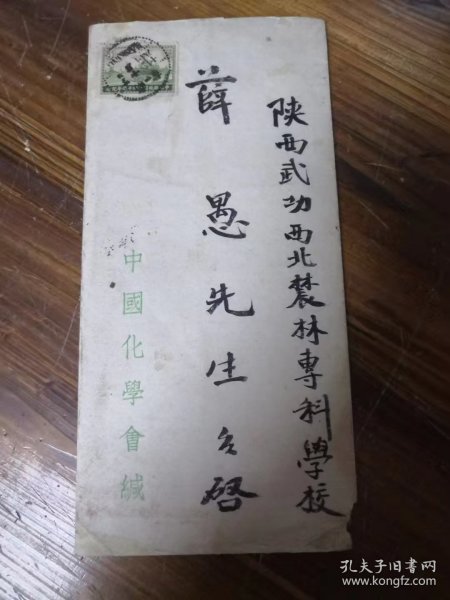 陝西武功西北農林專科學校
薛愚先生台啓
中國化學會緘
孔夫子旧书网
www.kongfz.com